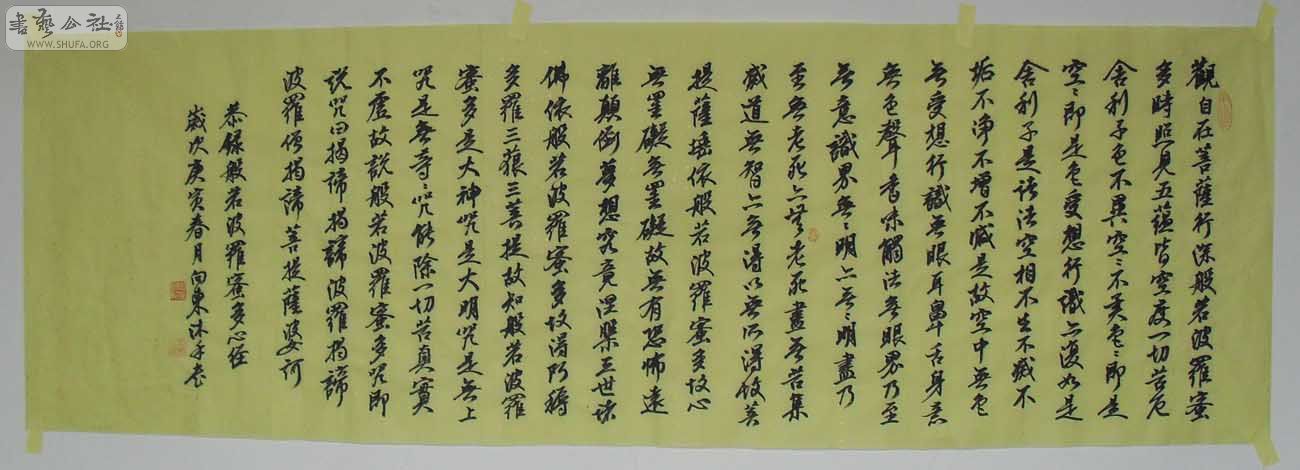 書藝公社
WWW.SHUFA.ORG
觀自在菩薩行深般若波羅蜜
多時照見五蘊皆空度一切苦厄
舍利子色不異空〻不異色〻即是
空〻即是色受想行識亦復如是
舍利子是諸法空相不生不滅不
垢不淨不增不減是故空中無色
無受想行識無眼耳鼻舌身意
無色聲香味觸法無眼界乃至
無意識界無〻明亦無〻明盡乃
至無老死亦無老死盡無苦集
滅道無智亦無得以無所得故菩
提薩埵依般若波羅蜜多故心
無罣礙無罣礙故無有恐怖遠
離顛倒夢想究竟涅槃三世諸
佛依般若波羅蜜多故得阿耨
多羅三藐三菩提故知般若波羅
蜜多是大神咒是大明咒是無上
咒是無等〻咒能除一切苦真實
不虛故說般若波羅蜜多咒即
說咒曰揭諦揭諦波羅揭諦
波羅僧揭諦菩提薩婆訶
恭錄般若波羅蜜多心經
歲次庚寅春月向東沐手書